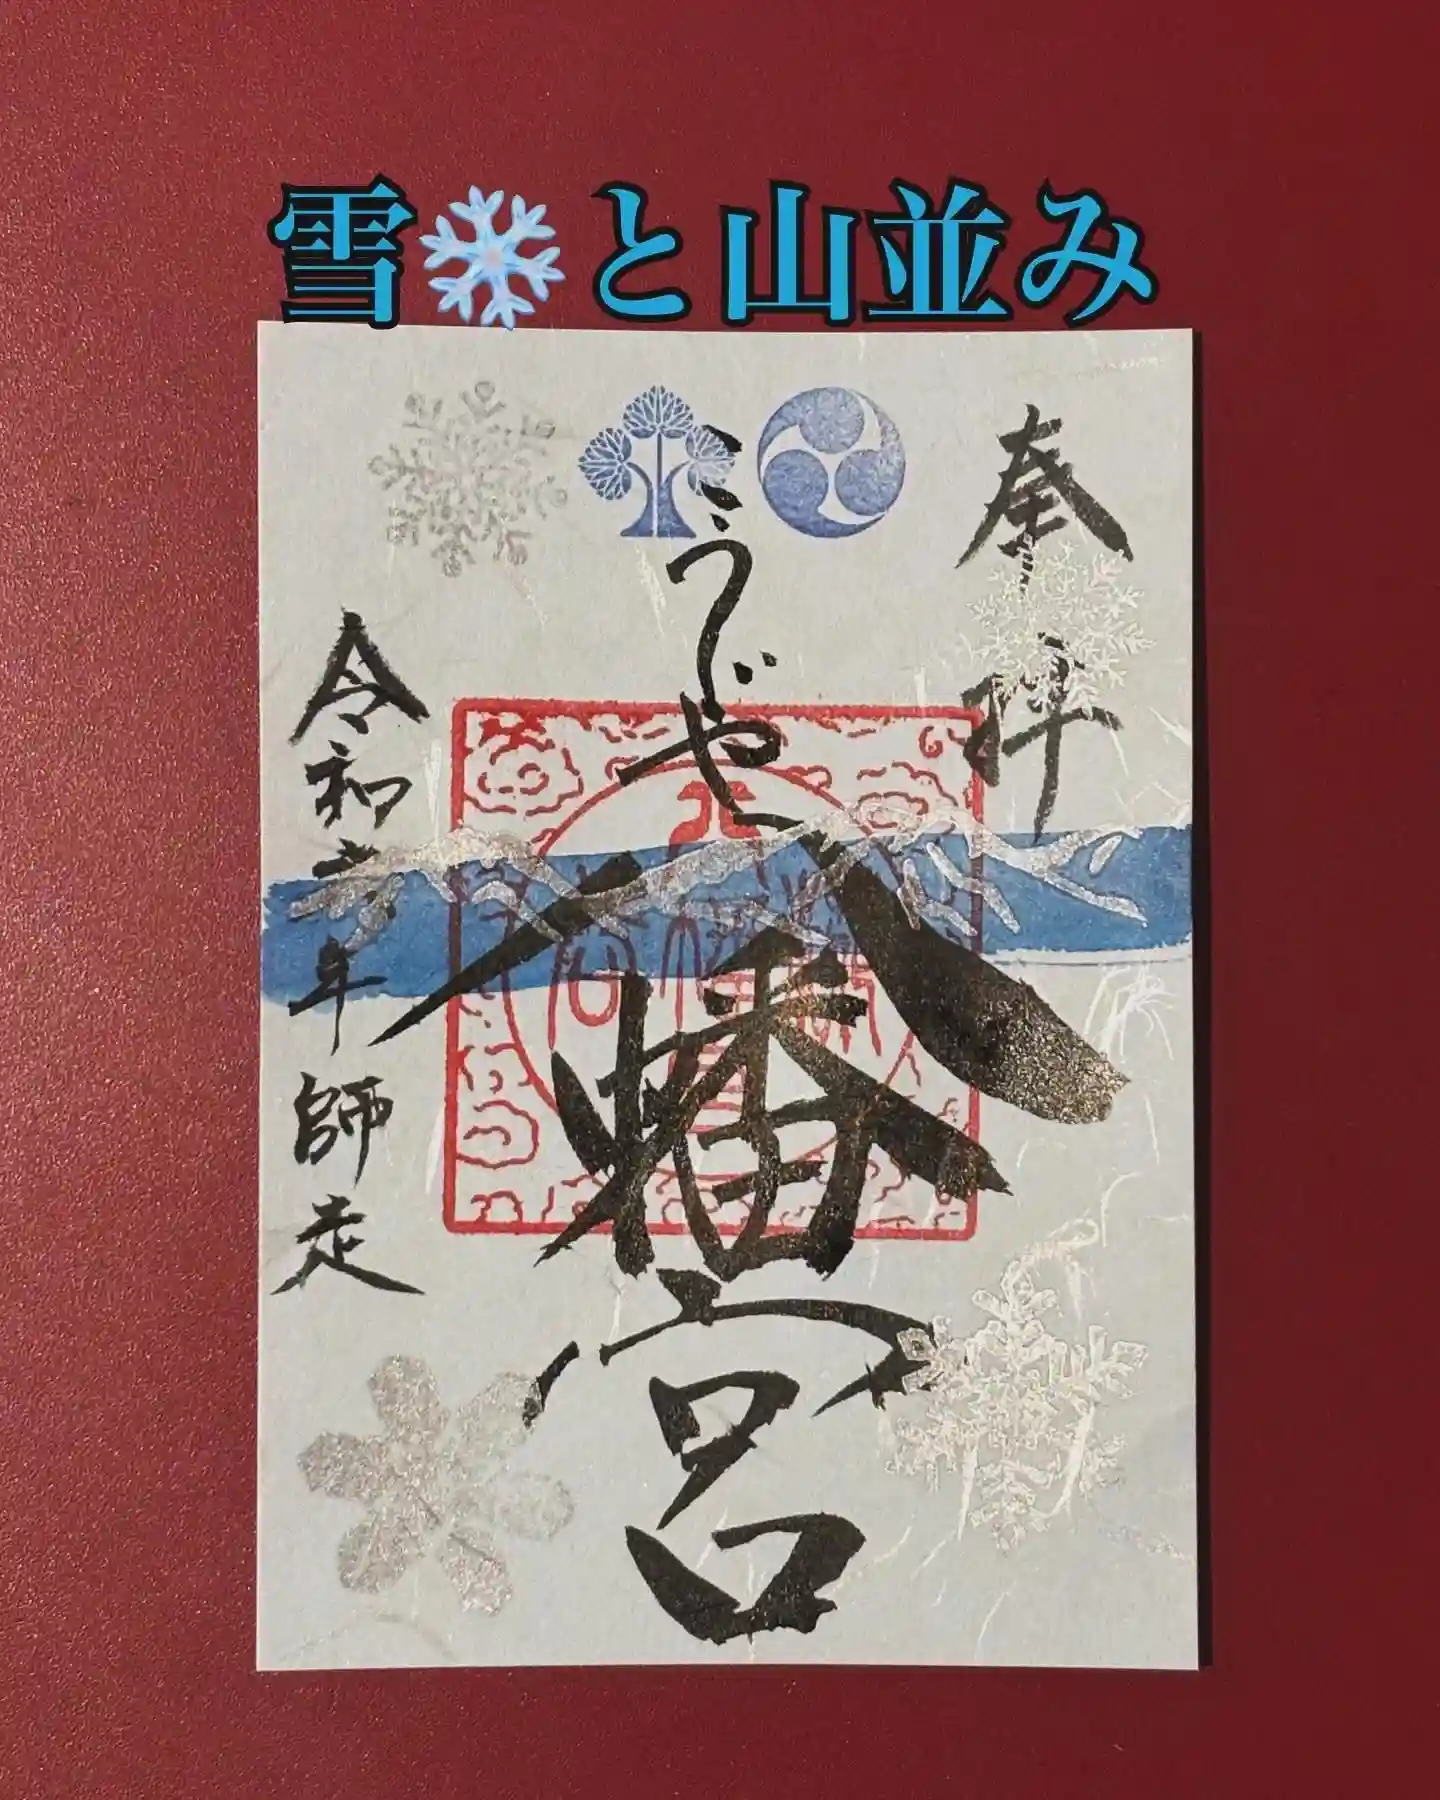 雪❄と山並み
奉拝
こうじや八幡宮
令和六年師走